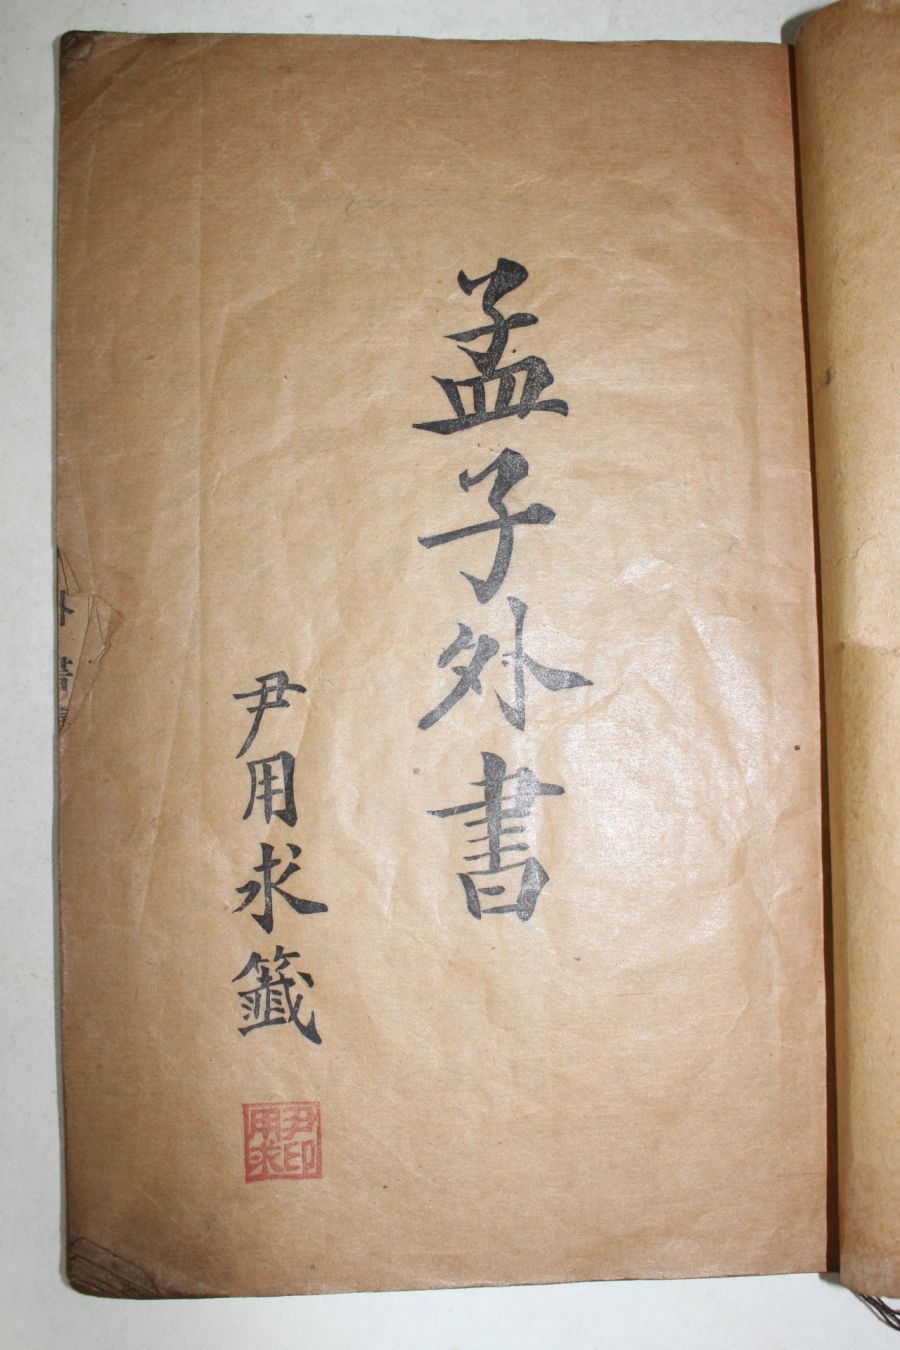 孟子外書
尹用求籤
尹印用求